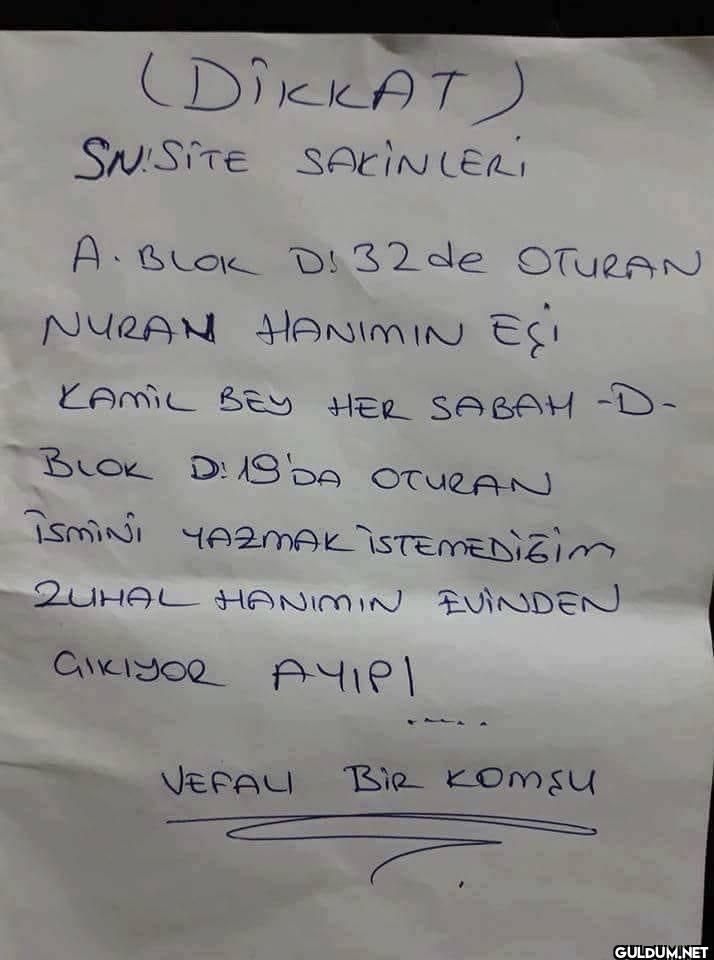 (DİKKAT)
SN! SİTE SAKİNLERİ
A. BLOK D! 32 de OTURAN
NURAN HANIMIN EŞİ
KAMİL BEY HER SABAH -D-
BLOK D: 19'DA OTURAN
İSMİNİ YAZMAK İSTEMEDİĞİM
ZUHAL HANIMIN EVİNDEN
ÇIKIYOR AYIP!
......
VEFALI BİR KOMŞU
GULDUM.NET